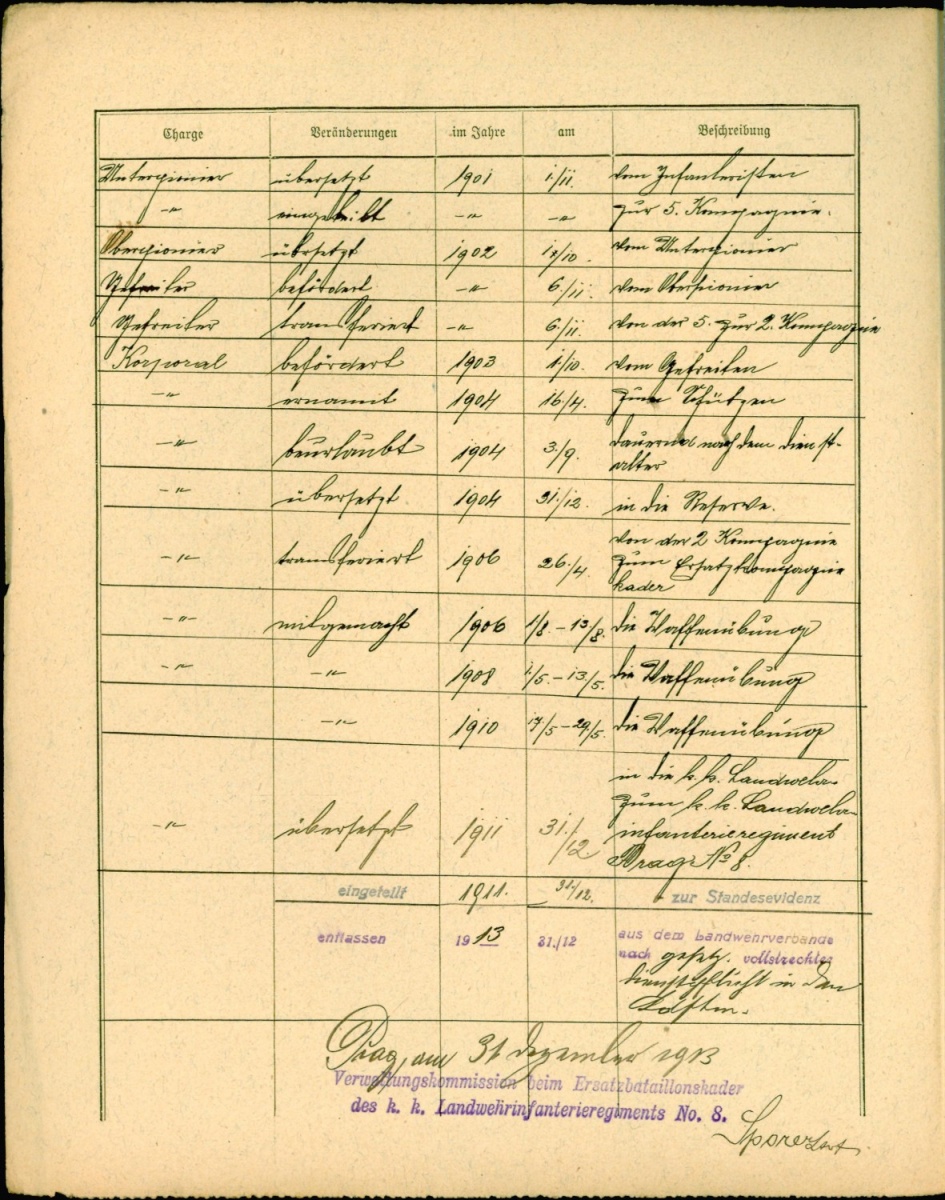 Charge Veränderungen im Jahre am Beschreibung
Unterpionier übersetzt 1901 1/11. vom Infanteristen
-"- eingeteilt -"- -"- zur 5. Kompagnie.
Oberpionier übersetzt 1902 1/10. vom Unterpionier
Gefreiter befördert -"- 6./11. vom Oberpionier
Gefreiter transferiert -"- 6./11. von der 5. zur 2. Kompagnie
Korporal befördert 1903 1/10. vom Gefreiten
-"- ernannt 1904 16/4. zum Schützen
-"- beurlaubt 1904 3/9. dauernd nach dem Dienst-
alter
-"- übersetzt 1904 31./12. in die Reserve.
-"- transferiert 1906 26./4. von der 2 Kompagnie
zum Ersatzkompagnie
kader
-"- mitgemacht 1906 1/8. – 13/8. die Waffenübung
-"- -"- 1908 1./5. – 13./5. die Waffenübung
-"- 1910 17/5 – 29/5. die Waffenübung
-"- übersetzt 1911 31./12 in die k. k. Landweh-
zum k. k. Landweh-
infanterieregiment
Prag No 8.
eingeteilt 1911. 31./12. zur Standesevidenz
entlassen 1913 31./12 aus dem Landwehrverbande
nach gesetz. vollstreckter
Dienstpflicht in den
Prag, am 31 Dezember 1913
Verwaltungskommission beim Ersatzbataillonskader
des k. k. Landwehrinfanterieregiments No. 8.
Sporer